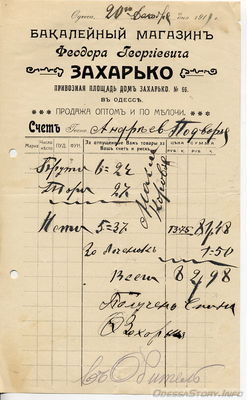 Одесса, 20го Декабря дня 1919 г.
БАКАЛЕЙНЫЙ МАГАЗИНЪ
Феодора Георгіевича
ЗАХАРЬКО
ПРИВОЗНАЯ ПЛОЩАДЬ ДОМЪ ЗАХАРЬКО, № 66.
ВЪ ОДЕССѢ.
ПРОДАЖА ОПТОМЪ И ПО МѢЛОЧИ.
Счетъ Андреев Подворье
Марка Число мѣстъ ПУД. ФУН. За отпущенные Вамъ товары за Вашъ счетъ и рискъ. ЦѢНА СУММА
РУБ. К. РУБ. К.
Брутто 6=24
Тара 27
Нетто 5=37 1375 81,48
За 1=50
Всего 82,98
Получено Сполна
Захарько
OdessaStory.Info